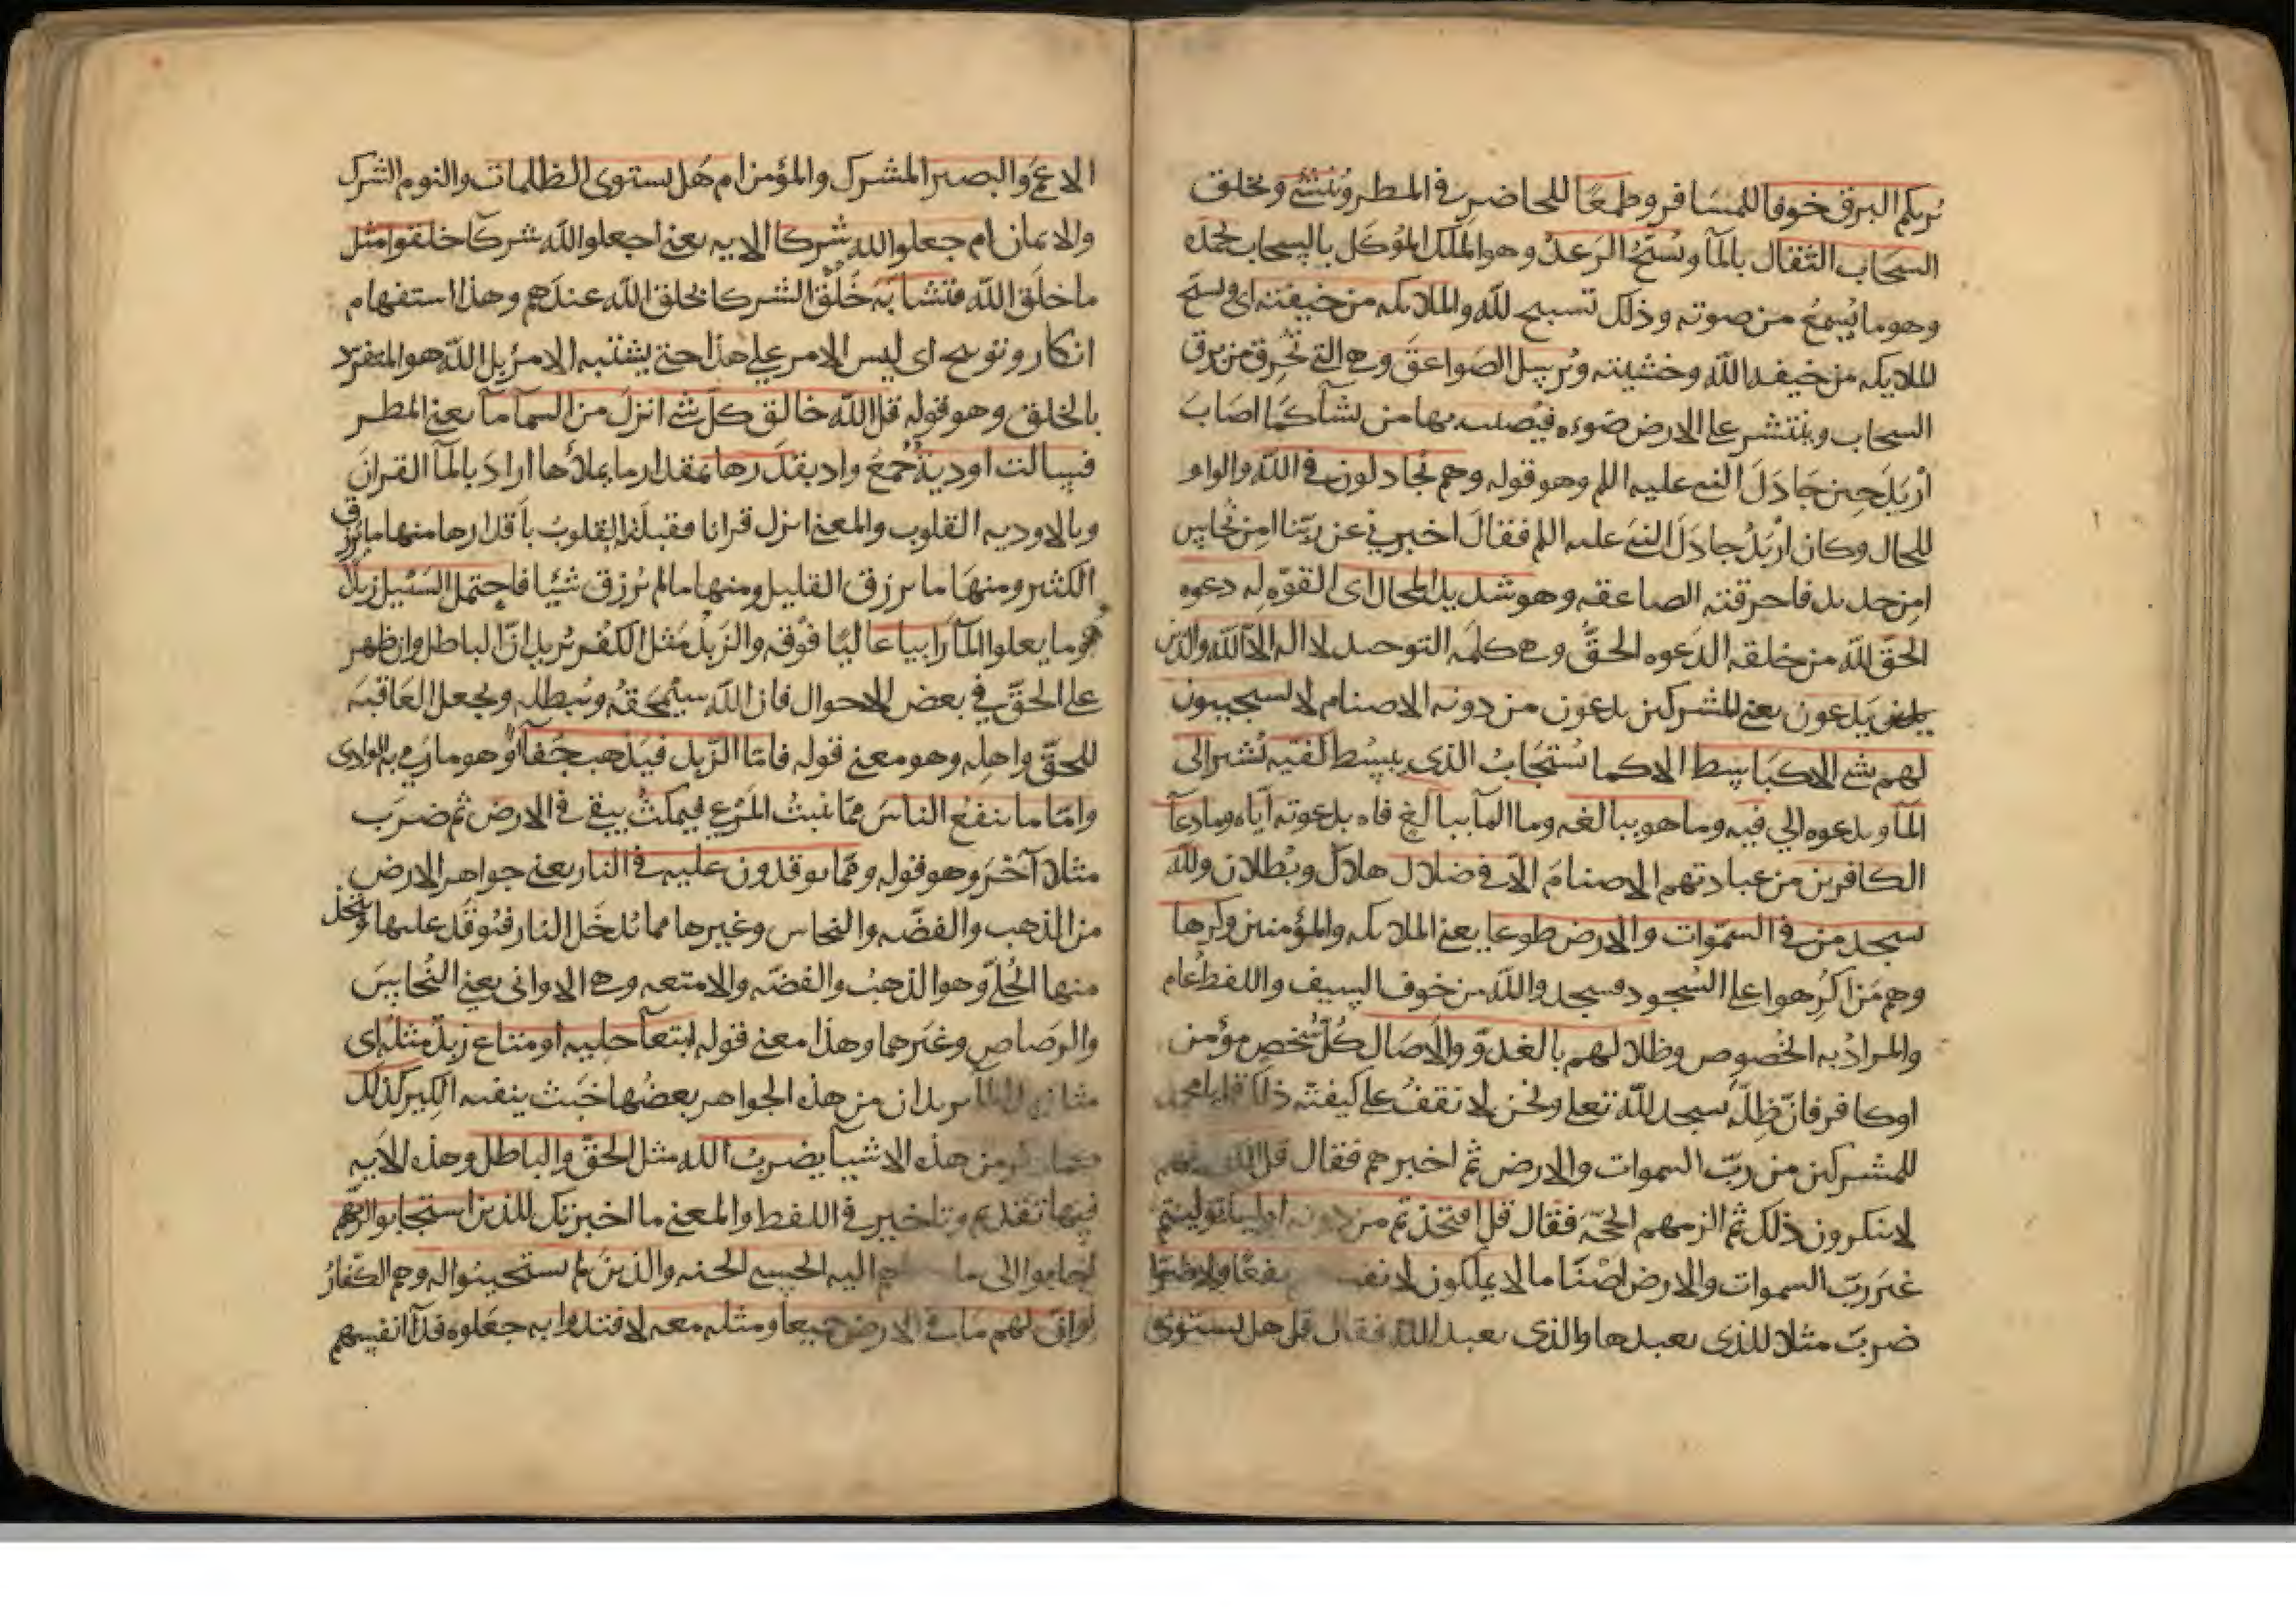 يريكم البرق خوفا للمسافر وطمعا للحاضر في المطر وينشئ ويخلق
السحاب الثقال بالمآ ويسبح الرعد وهو الملك الموكل بالسحاب بحمده
وهو ما يسمع من صوته وذلك تسبيح لله والملايكه من خيفته اى ويسبح
الملايكه من خيفه الله وخشيته ويرسل الصواعق وهي التي تحرق من برق
السحاب وينتشر على الارض ضوءه فيصيب بها من يشآ كما اصاب
اربد حين جادل النبي عليه اللم وهو قوله وهم يجادلون في الله والواو
للحال وكان اربد جادل النبي عليه اللم فقال اخبرني عن ربنا امن نحاس
امن حديد فاحرقته الصاعقه وهو شديد المحال اى القوه له دعوه
الحق لله من خلقه الدعوه الحق وهي كلمه التوحيد لا اله الا الله والذين
يدعون يعني المشركين يدعون من دونه الاصنام لا يستجيبون
لهم بشي الا كباسط الا كما يستجاب الذي يبسط كفيه يشير الى
المآ ويدعوه الى فيه وما هو ببالغه وما المآ ببالغ فاه بدعوته اياه وما دعآ
الكافرين من عبادتهم الاصنام الا في ضلال هلاك وبطلان ولله
يسجد من في السموات والارض طوعا يعني الملايكه والمؤمنين وكرها
وهم من اكرهوا على السجود فسجد والله من خوف السيف واللفظ عام
والمراد به الخصوص وظلالهم بالغدو والاصال كل شخص مؤمن
او كافر فان ظله يسجد لله تعلى ونحن لا نقف على كيفية ذلك قل يا محمد
للمشركين من رب السموات والارض ثم اخبرهم فقال قل الله
لا ينكرون ذلك ثم الزمهم الحجه فقال قل افتخذتم من دونه اوليا توليتم
غير رب السموات والارض اصناما لا يملكون لانفسهم نفعا ولا ضرا
ضرب مثلا للذي يعبدها والذي يعبد الله فقال قل هل يستوى
الاعمى والبصير المشرك والمؤمن ام هل يستوى الظلمات والنور الشرك
والايمان ام جعلوا لله شركا الايه يعني اجعلوا لله شركآ خلقوا مثل
ما خلق الله فتشابه خلق الشركا بخلق الله عندهم وهذا استفهام
انكار وتوبيخ اى ليس الامر على هذا حتى يشتبه الامر بل الله هو المتفرد
بالخلق وهو قوله قل الله خالق كل شي انزل من السمآ مآ يعني المطر
فسالت اودية جمع واد بقدرها بمقدار ما يملأها اراد بالمآ القران
وبالاوديه القلوب والمعنى انزل قرانا فقبلته القلوب باقدارها منها ما يرزق
الكثير ومنها ما يرزق القليل ومنها ما لم يرزق شيئا فاحتمل السيل زبدا
وما يعلوا المآ رابيا عاليا فوقه والزبد مثل الكفر يريد ان الباطل وان ظهر
على الحق في بعض الاحوال فان الله سيمحقه ويبطله ويجعل العاقبه
للحق واهله وهو معنى قوله فاما الزبد فيذهب جفآء وهو ما رمى به الوادى
واما ما ينفع الناس مما ينبت المرعى فيمكث يبقى في الارض ثم ضرب
مثلا آخر وهو قوله ومما يوقدون عليه في النار يعني جواهر الارض
من الذهب والفضه والنحاس وغيرها مما يدخل النار فتوقد عليها ويتخذ
منها الحلى وهو الذهب والفضه والامتعه وهي الاوانى يعني النحاس
والرصاص وغيرهما وهذا معنى قوله ابتغآ حليه او متاع زبد مثله اى
مثل زبد المآ يريد ان من هذه الجواهر بعضها خبث ينفيه الكير كذلك
من هذه الاشيآ يضرب الله مثل الحق والباطل وهذه الايه
فيها تقديم وتاخير في اللفظ والمعنى ما اخبرتك للذين استجابوا لربهم
اجابوا الى ما اليه الحسنى الجنه والذين لم يستجيبوا له وهم الكفار
لو ان لهم ما في الارض جميعا ومثله معه لافتدوا به جعلوه فدآ انفسهم